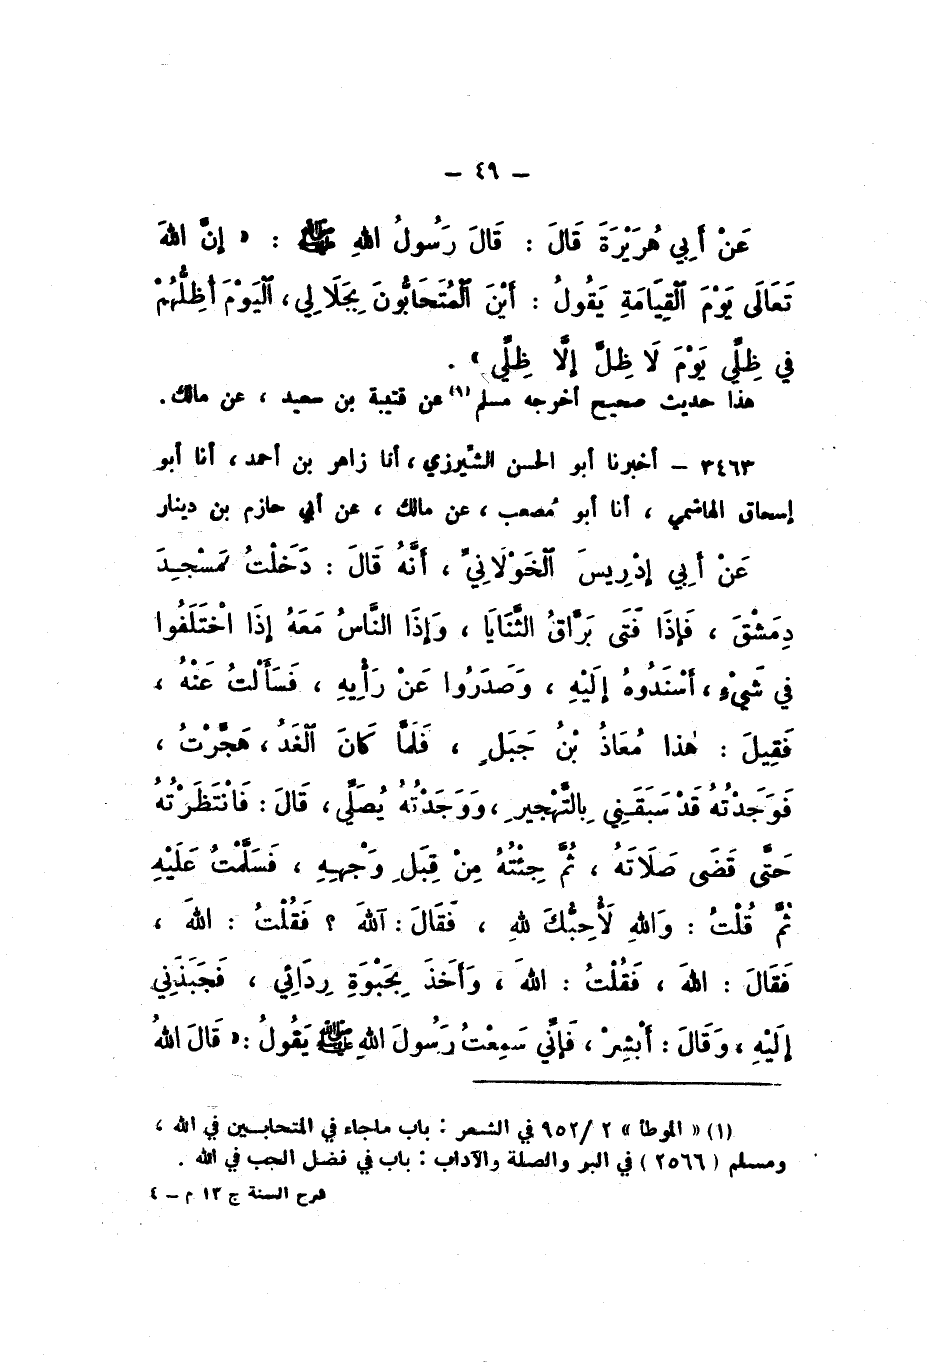 – ٤٩ –
عَنْ أَبِي هُرَيْرَةَ قَالَ : قَالَ رَسُولُ اللهِ ﷺ : « إِنَّ اللهَ
تَعَالَى يَوْمَ ٱلْقِيَامَةِ يَقُولُ : أَيْنَ ٱلْمُتَحَابُّونَ بِجَلَالِي ، ٱلْيَوْمَ أُظِلُّهُمْ
فِي ظِلِّي يَوْمَ لَا ظِلَّ إِلَّا ظِلِّي » .
هذا حديث صحيح أخرجه مسلم (١) عن قتيبة بن سعيد ، عن مالك .
٣٤٦٣ – أخبرنا أبو الحسن الشِّيرزي ، أنا زاهر بن أحمد ، أنا أبو
إسحاق الهاشمي ، أنا أبو مُصعب ، عن مالك ، عن أبي حازم بن دينار
عَنْ أَبِي إِدْرِيسَ ٱلْخَوْلَانِيِّ ، أَنَّهُ قَالَ : دَخَلْتُ مَسْجِدَ
دِمَشْقَ ، فَإِذَا فَتَى بَرَّاقُ الثَّنَايَا ، وَإِذَا النَّاسُ مَعَهُ إِذَا اخْتَلَفُوا
فِي شَيْءٍ ، أَسْنَدُوهُ إِلَيْهِ ، وَصَدَرُوا عَنْ رَأْيِهِ ، فَسَأَلْتُ عَنْهُ ،
فَقِيلَ : هٰذا مُعَاذُ بْنُ جَبَلٍ ، فَلَمَّا كَانَ ٱلْغَدُ ، هَجَّرْتُ ،
فَوَجَدْتُهُ قَدْ سَبَقَنِي بِالتَّهْجِيرِ ، وَوَجَدْتُهُ يُصَلِّي ، قَالَ : فَانْتَظَرْتُهُ
حَتَّى قَضَى صَلَاتَهُ ، ثُمَّ جِئْتُهُ مِنْ قِبَلِ وَجْهِهِ ، فَسَلَّمْتُ عَلَيْهِ
ثُمَّ قُلْتُ : وَاللهِ لَأُحِبُّكَ للهِ ، فَقَالَ : آللهَ ؟ فَقُلْتُ : اللهَ ،
فَقَالَ : اللهَ ، فَقُلْتُ : اللهَ ، وَأَخَذَ بِحَبْوَةِ رِدَائِي ، فَجَبَذَنِي
إِلَيْهِ ، وَقَالَ : أَبْشِرْ ، فَإِنِّي سَمِعْتُ رَسُولَ اللهِ ﷺ يَقُولُ : « قَالَ اللهُ
(١) « الموطأ » ٢ / ٩٥٢ في الشعر : باب ماجاء في المتحابين في الله ،
ومسلم ( ٢٥٦٦ ) في البر والصلة والآداب : باب في فضل الحب في الله .
شرح السنة ج ١٣ م – ٤